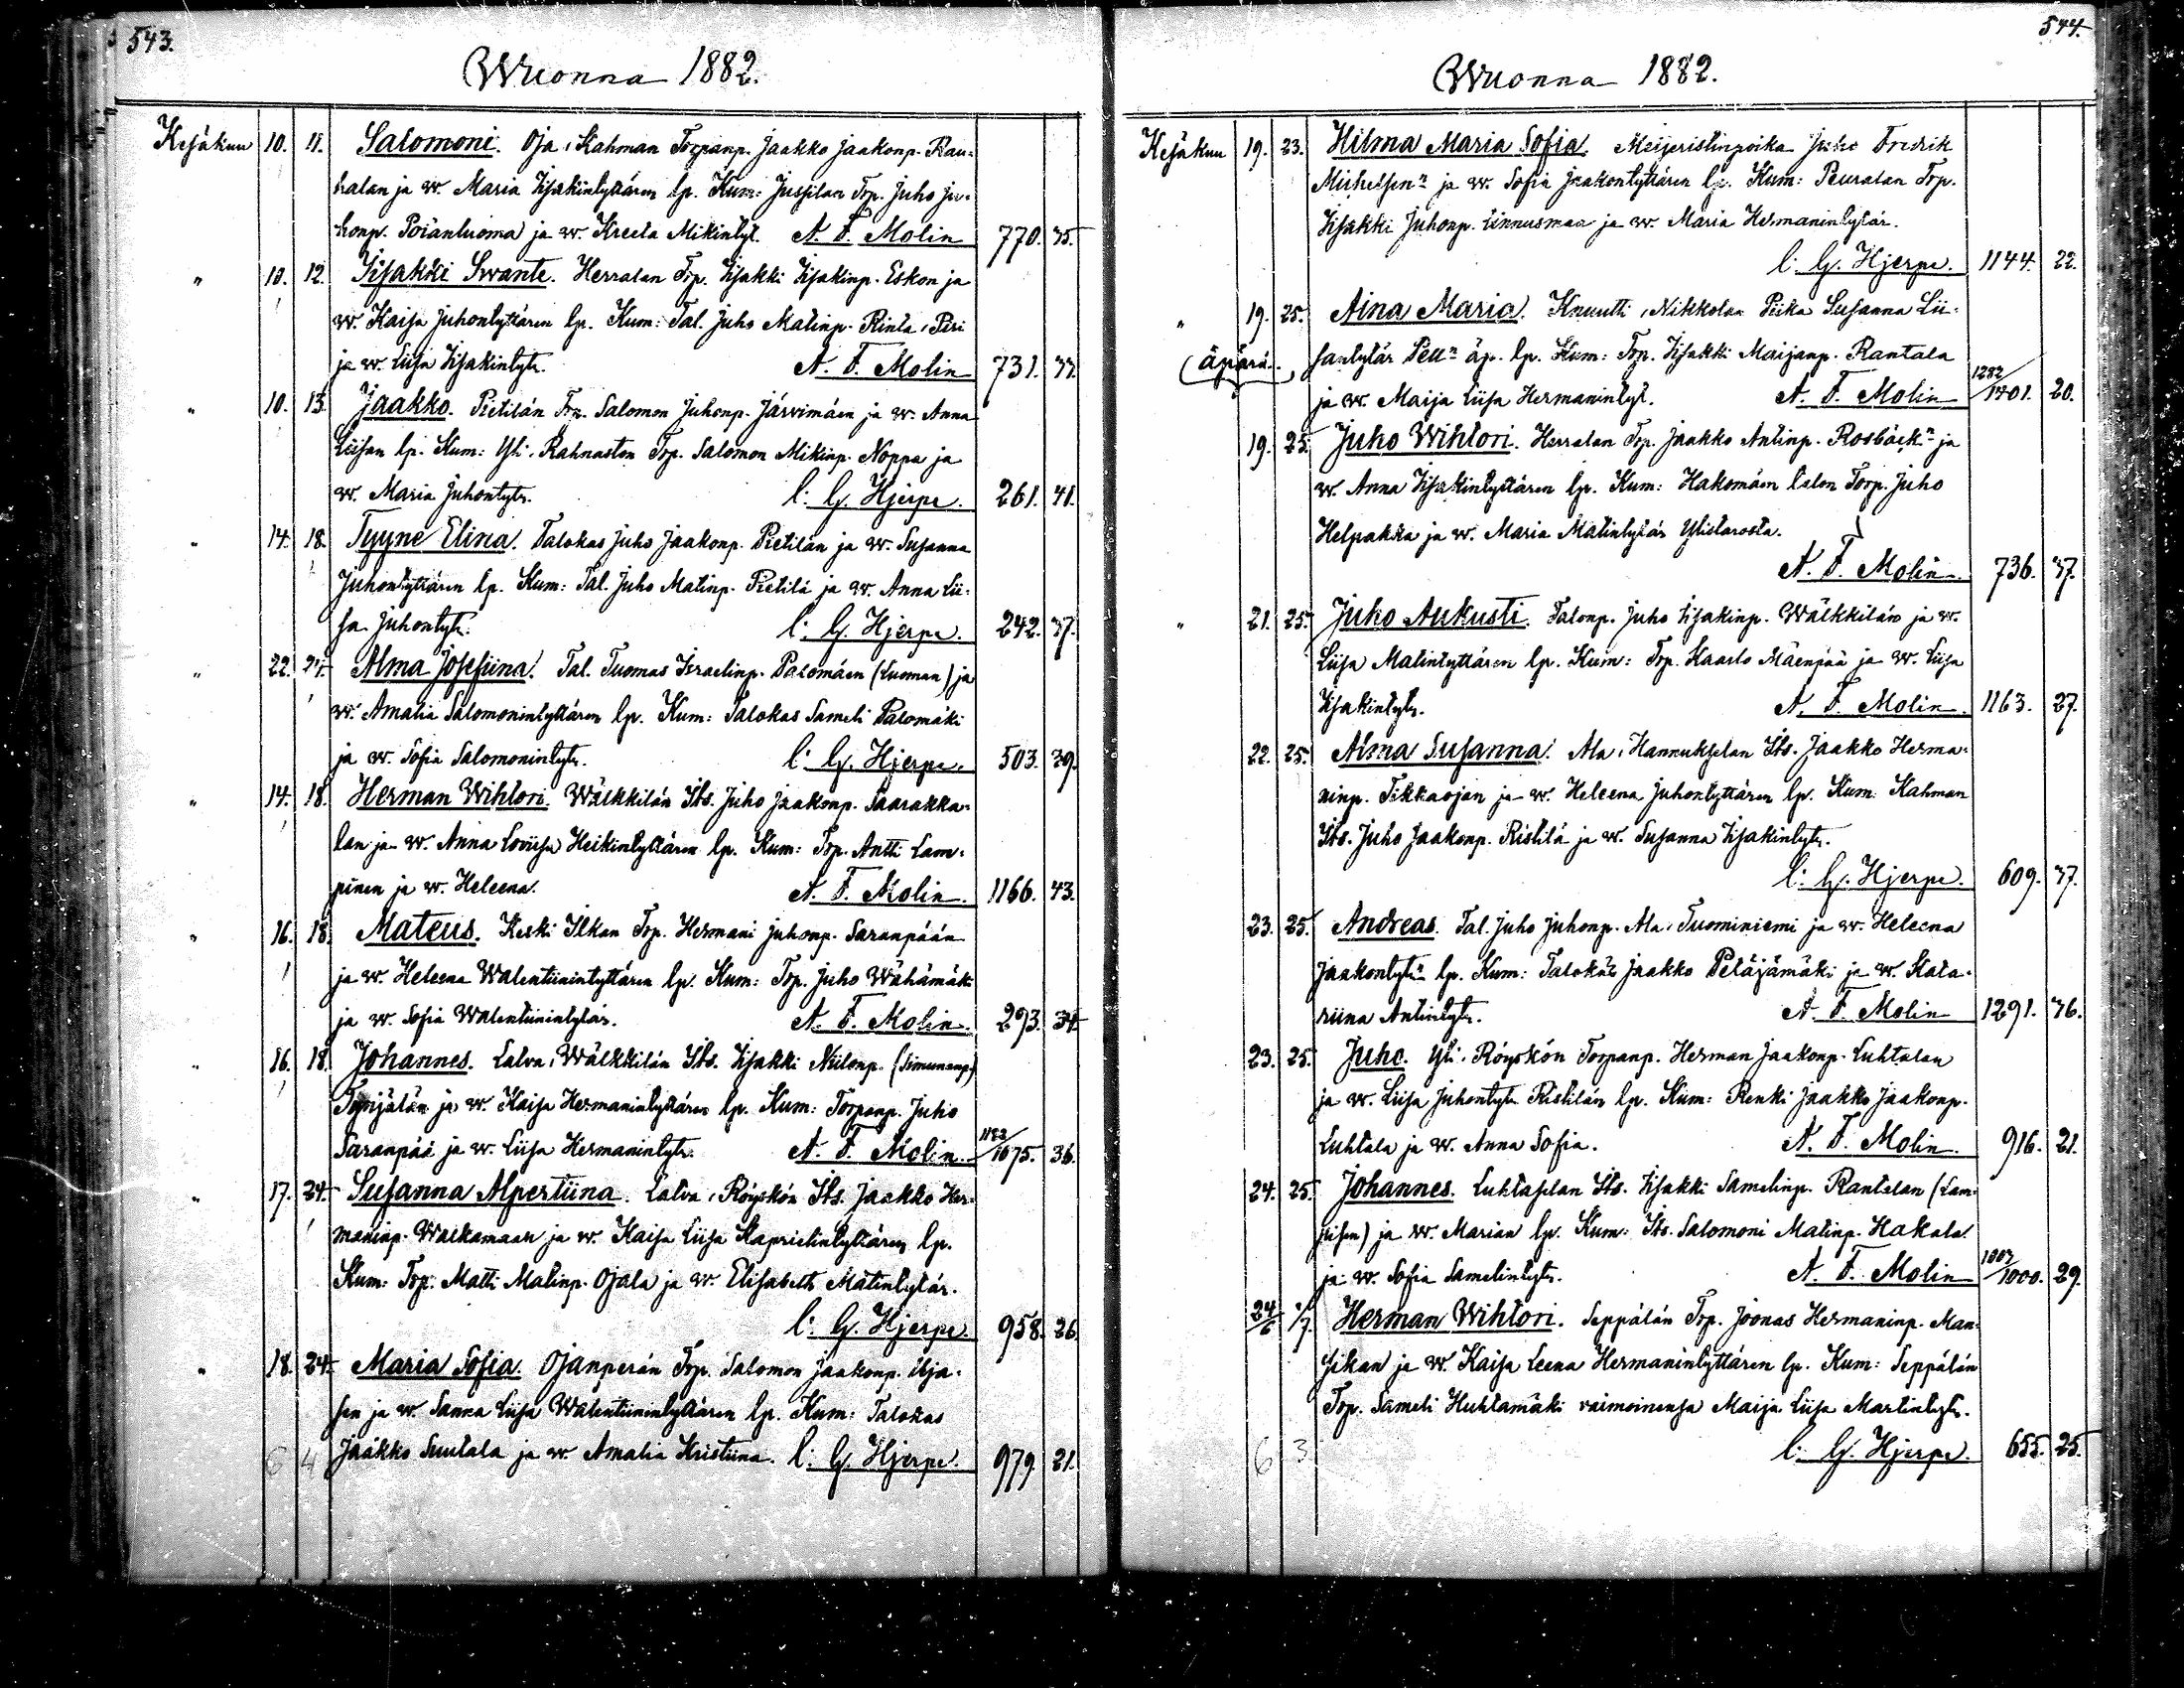 543.
Wuonna 1882.
Kesäkuu 10. 11. Salomoni. Oja, Kahman Torpanp. Jaakko Jaakonp. Rau-
halan ja w. Maria Iisakintyttären lp. Kum: Jussilan Trp. Juho Ju-
honp. Poianluoma ja w. Kreeta Mikintyt. A. F. Molin 770. 35.
" 10. 12. Iisakki Swante. Herralan Trp. Iisakki Iisakinp. Eskon ja
w. Kaisa Juhontyttären lp. Kum: Tal. Juho Matinp. Rinta, Piri
ja w. Liisa Iisakintytr. A. F. Molin 731. 33.
" 10. 13. Jaakko. Pietilän Trp. Salomon Juhonp. Järvimäen ja w. Anna
Liisan lp. Kum: Yli, Rahnaston Trp. Salomon Mikinp. Noppa ja
w. Maria Juhontytr. C. G. Hjerpe. 261. 41.
" 14. 18. Tyyne Elina. Talokas Juho Jaakonp. Pietilän ja w. Susanna
Juhontyttären lp. Kum: Tal. Juho Matinp. Pietilä ja w. Anna Lii-
sa Juhontytr. C. G. Hjerpe. 242. 37.
" 22. 24. Alma Josefiina. Tal. Tuomas Israelinp. Palomäen (Luoman) ja
w. Amalia Salomonintyttären lp. Kum: Talokas Sameli Palomäki
ja w. Sofia Salomonintytr. C. G. Hjerpe. 503. 39.
" 14. 18. Herman Wihtori. Wälkkilän Its. Juho Jaakonp. Saarakka-
lan ja w. Anna Loviisa Heikintyttären lp. Kum: Trp. Antti Lam-
pinen ja w. Heleena. A. F. Molin. 1166. 43.
" 16. 18. Mateus. Keski Ilkan Trp. Hermani Juhonp. Saranpään
ja w. Heleena Walentiinintyttären lp. Kum: Trp. Juho Wähämäki
ja w. Sofia Walentiinintytär. A. F. Molin. 293. 34.
" 16. 18. Johannes. Latva, Wälkkilän Its. Iisakki Niilonp. (Simunanp.)
ja w. Kaisa Hermanintyttären lp. Kum: Torpanp. Juho
Saranpää ja w. Liisa Hermanintytr. A. F. Molin. 1075. 36.
" 17. 24. Susanna Alpertiina. Latva, Röyskön Its. Jaakko Her-
maninp. Walkamaan ja w. Kaisa Liisa Kaprielintyttären lp.
Kum: Trp. Matti Matinp. Ojala ja w. Elisabeth Matintytär.
C. G. Hjerpe. 958. 26.
" 18. 24. Maria Sofia. Ojanperän Trp. Salomon Jaakonp. Uja-
sen ja w. Sanna Liisa Walentiinintyttären lp. Kum: Talokas
6 4 Jaakko Suutala ja w. Amalia Kristiina. C. G. Hjerpe. 979. 21.
544.
Wuonna 1882.
Kesäkuu 19. 23. Hilma Maria Sofia. Meijeristinpoika Juho Fredrik
Michelsenn ja w. Sofia Jaakontyttären lp. Kum: Peuralan Trp.
Iisakki Juhonp. Linnusmaa ja w. Maria Hermanintytär.
C. G. Hjerpe. 1144. 22.
" 19. 25. Aina Maria. Knuutti, Nikkolan Piika Susanna Lii-
(äpärä.) santytär Pelln äp. lp. Kum: Trp. Iisakki Maijanp. Rantala
ja w. Maija Liisa Hermanintyt. A. F. Molin 1282/1401. 20.
19. 25. Juho Wihtori. Herralan Trp. Jaakko Antinp. Rosbäckn ja
w. Anna Iisakintyttären lp. Kum: Hakomäen talon Torp. Juho
Helpakka ja w. Maria Matintytär Ylistarosta.
A. F. Molin. 736. 37.
" 21. 25. Juho Aukusti. Talonp. Juho Iisakinp. Wälkkilän ja w.
Liisa Matintyttären lp. Kum: Trp. Kaarlo Mäenpää ja w. Liisa
Iisakintytr. A. F. Molin. 1163. 27.
22. 25. Alma Susanna. Ala, Hannukselan Its. Jaakko Herma-
ninp. Tikkaojan ja w. Heleena Juhontyttären lp. Kum: Kahman
Its. Juho Jaakonp. Ristilä ja w. Susanna Iisakintytr.
C. G. Hjerpe. 609. 37.
23. 25. Andreas. Tal. Juho Juhonp. Ala, Tuominiemi ja w. Heleena
Jaakontytrn lp. Kum: Talokas Jaakko Petäjämäki ja w. Kata-
riina Antintytr. A. F. Molin 1291. 36.
23. 25. Juho. Yli, Röyskön Torpanp. Herman Jaakonp. Luhtalan
ja w. Liisa Juhontytr. Ristilän lp. Kum: Renki Jaakko Jaakonp.
Luhtala ja w. Anna Sofia. A. F. Molin. 916. 21.
24. 25. Johannes. Luhtaselan Its. Iisakki Samelinp. Rantalan (Lam-
ja w. Marian lp. Kum: Its. Salomoni Matinp. Hakala
ja w. Sofia Samelintytr. A. F. Molin 1003/1000. 29.
24/6 1/7. Herman Wihtori. Seppälän Trp. Joonas Hermaninp. Man-
sikan ja w. Kaisa Leena Hermanintyttären lp. Kum: Seppälän
Trp. Sameli Huhtamäki vaimoinensa Maija Liisa Martintytr.
6 3 C. G. Hjerpe. 655. 25.